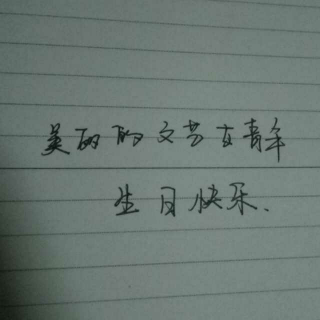 美丽的文艺女青年
生日快乐.